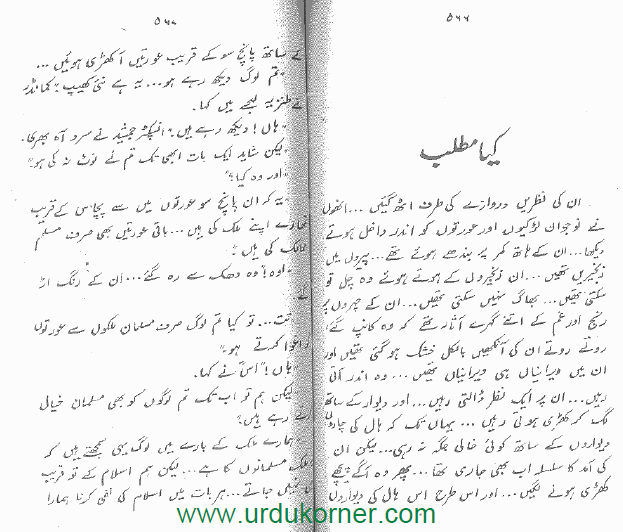 ۵۶۶
کیا مطلب
ان کی نظریں دروازے کی طرف اٹھ گئیں ... انھوں
نے نوجوان لڑکیوں اور عورتوں کو اندر داخل ہوتے
دیکھا ... ان کے ہاتھ کمر پر بندھے ہوئے تھے ... پیروں میں
زنجیریں تھیں ... ان زنجیروں کے ہوتے ہوئے وہ چل تو
سکتی تھیں ... بھاگ نہیں سکتی تھیں ... ان کے چہروں پر
رنج اور غم کے اتنے گہرے آثار تھے کہ وہ کانپ گئے
روتے روتے ان کی آنکھیں بالکل خشک ہو گئی تھیں اور
ان میں ویرانیاں ہی ویرانیاں تھیں ... وہ اندر آتی
رہیں ... ان پر ایک نظر ڈالتی رہیں ... اور دیوار کے ساتھ
لگ کر کھڑی ہوتی رہیں ... یہاں تک کہ ہال کی چاروں
دیواروں کے ساتھ کوئی خالی جگہ نہ رہی ... لیکن ان
کی آمد کا سلسلہ اب بھی جاری تھا ... پھر وہ آگے پیچھے
کھڑی ہونے لگیں ... اور اس طرح اس ہال کی دیواروں
۵۶۷
کے ساتھ پانچ سو کے قریب عورتیں آ کھڑی ہوئیں ...
"تم لوگ دیکھ رہے ہو ... یہ ہے نئی کھیپ۔" کمانڈر
نے طنزیہ لہجے میں کہا۔
"ہاں! دیکھ رہے ہیں۔" انسپکٹر جمشید نے سرد آہ بھری۔
"لیکن شاید ایک بات ابھی تک تم نے نوٹ نہ کی ہو۔"
"اور وہ کیا؟"
"یہ کہ ان پانچ سو عورتوں میں سے پچاس کے قریب
تمھارے اپنے ملک کی ہیں ... باقی عورتیں بھی صرف مسلم
ممالک کی ہیں۔"
"اوہ!" وہ دھک سے رہ گئے ... ان کے رنگ اڑ
گئے
"تت ... تو کیا تم لوگ صرف مسلمان ملکوں سے عورتوں
کو اغوا کرتے ہو۔"
"ہاں!" اس نے کہا۔
"لیکن ہم تو اب تک تم لوگوں کو بھی مسلمان خیال
کرتے رہے ہیں۔"
"ہمارے ملک کے بارے میں لوگ یہی سمجھتے ہیں کہ
ملک مسلمانوں کا ہے ... لیکن ہم اسلام کے تو قریب
نہیں جاتے ... ہر بات میں اسلام کی نفی کرنا ہمارا
www.urdukorner.com